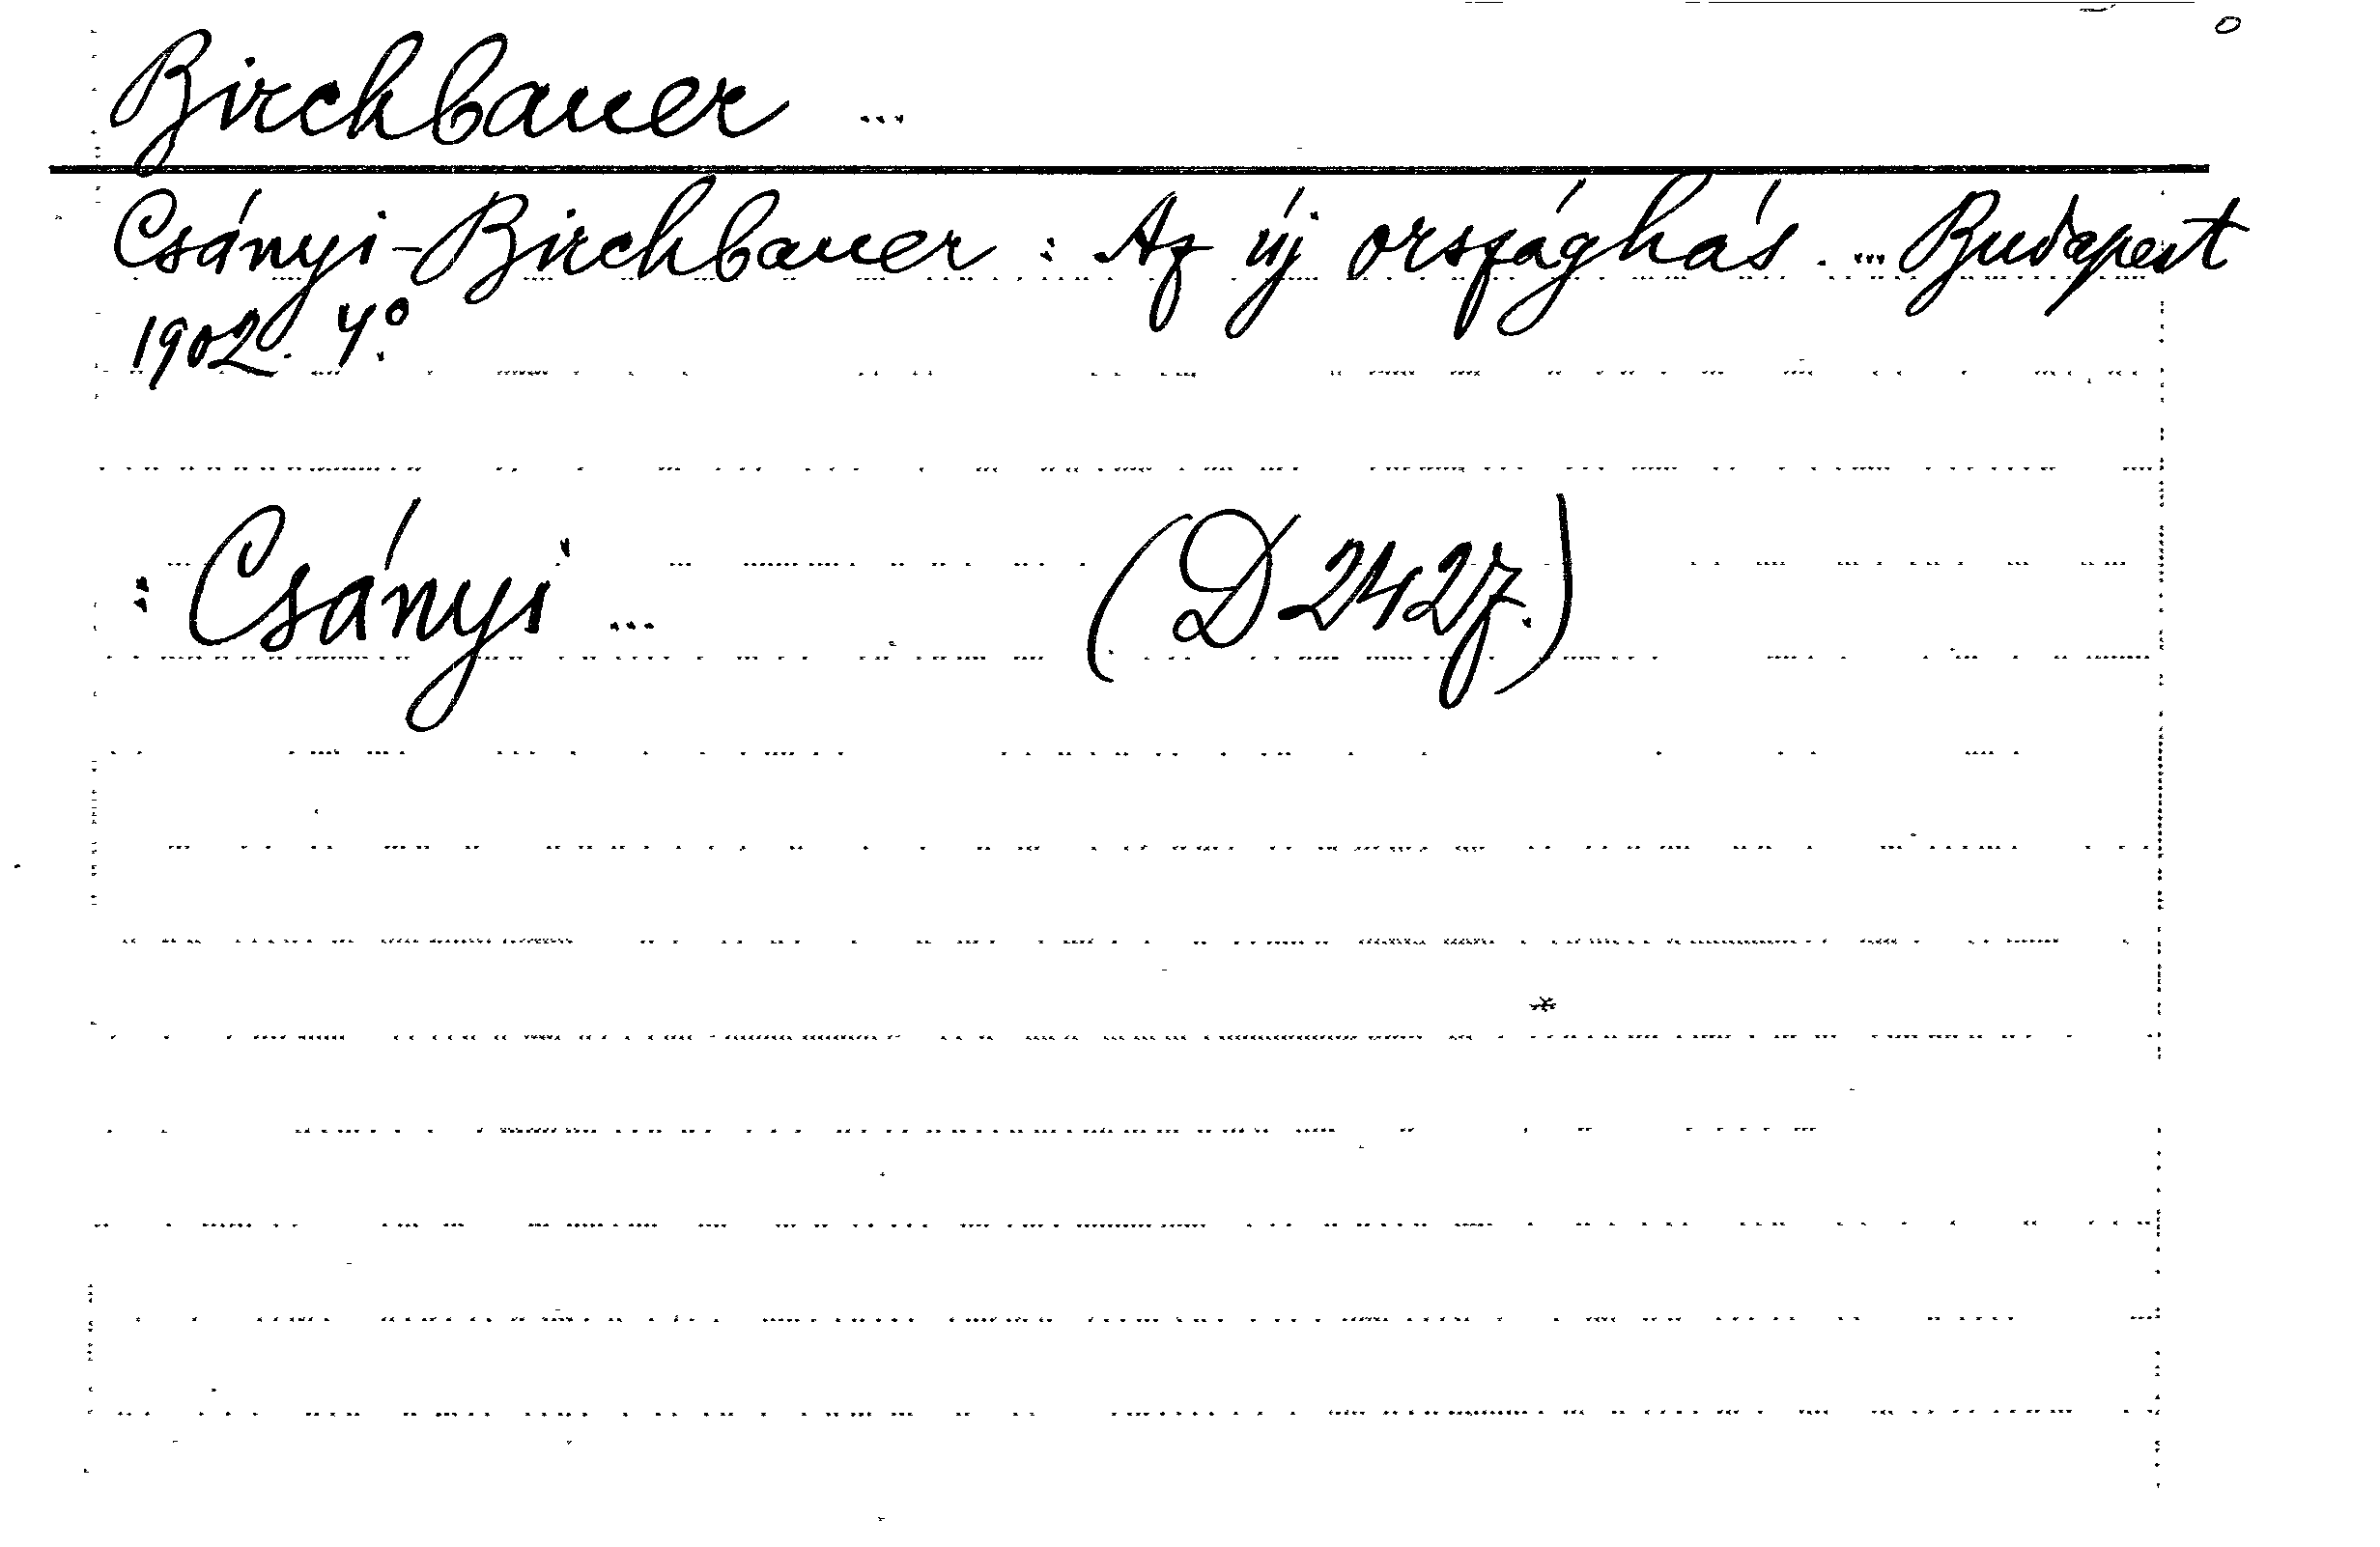 Birchbauer ...
Csányi-Birchbauer : Az új országhás. ... Budapest
1902. 4°.
: Csányi ... (D 2427.)